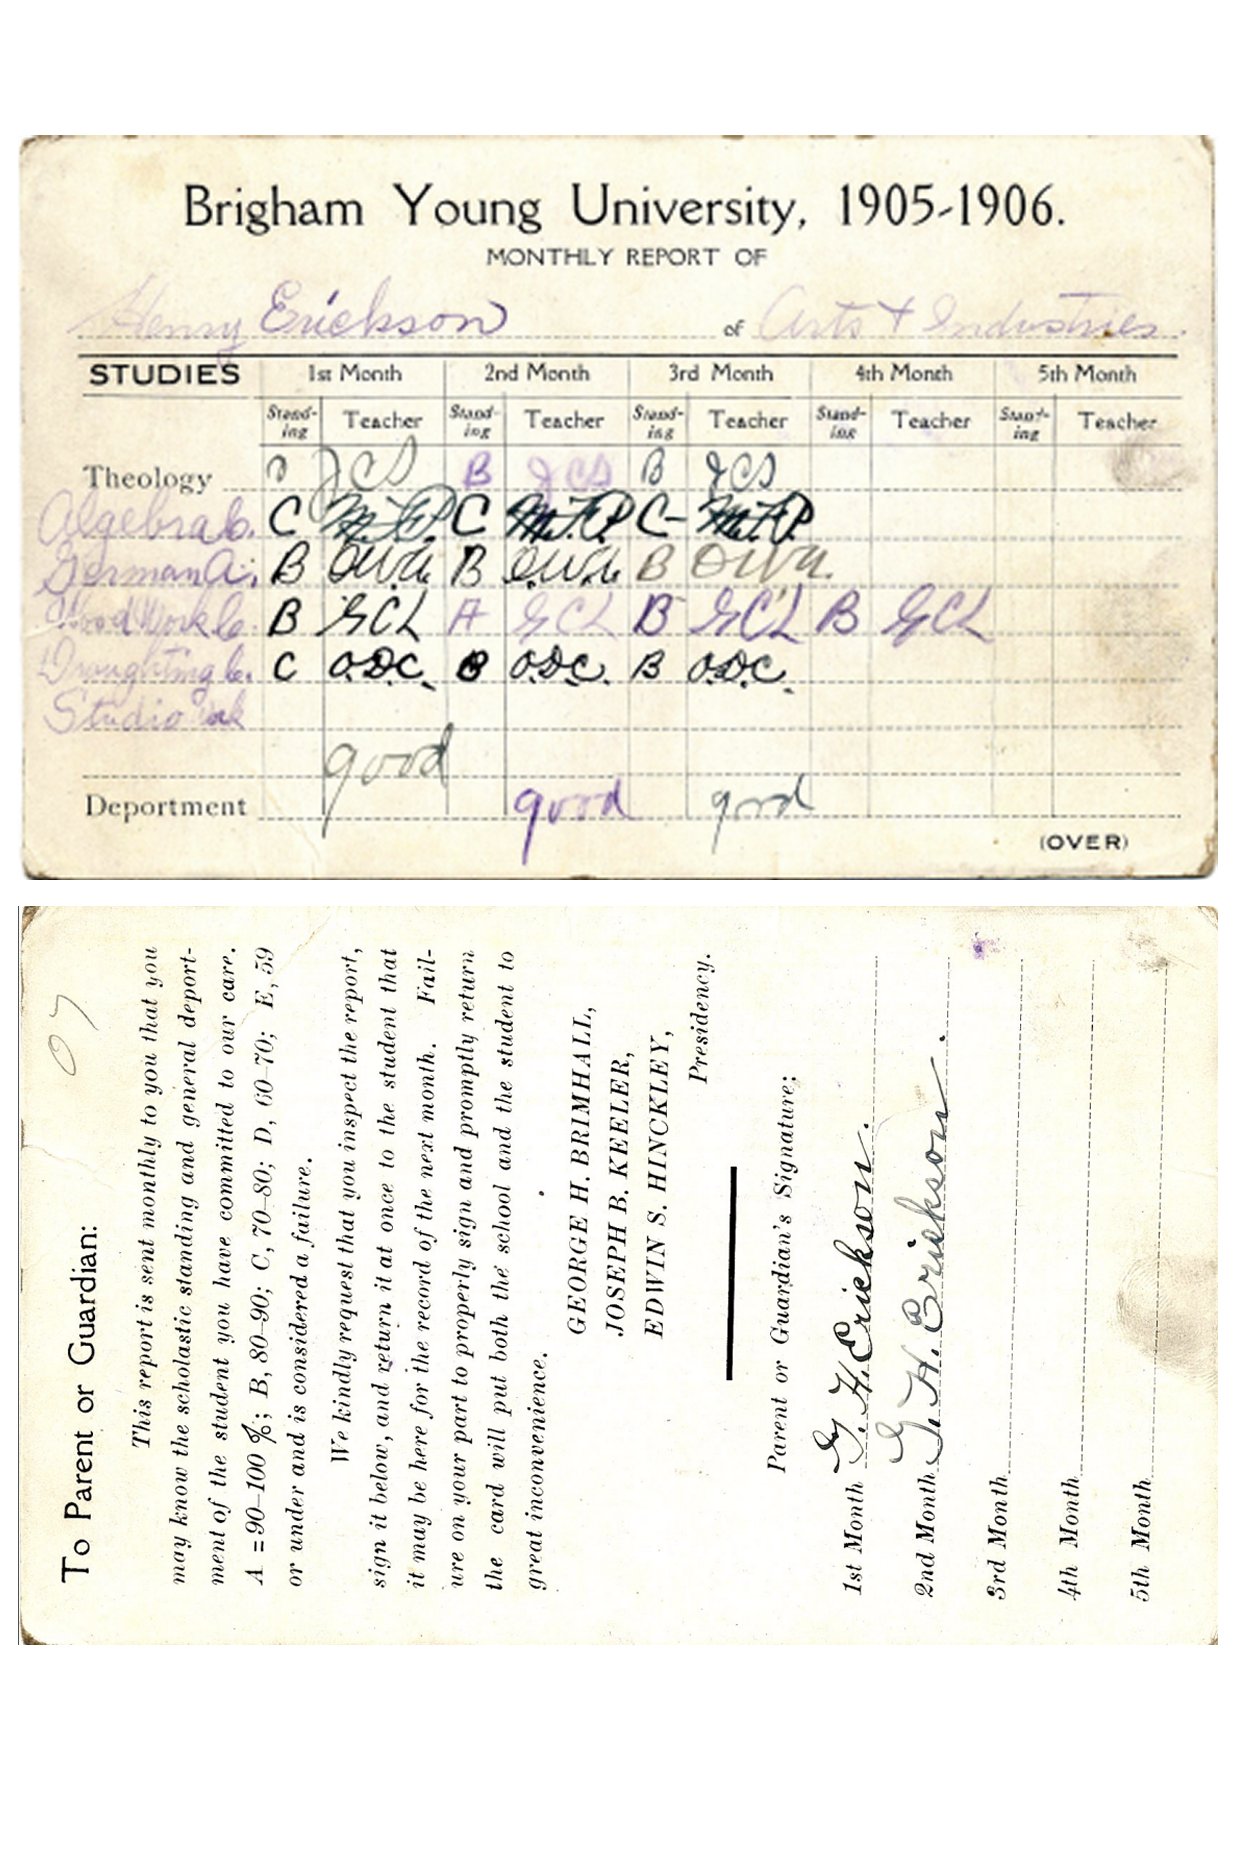 Brigham Young University, 1905-1906.
MONTHLY REPORT OF
Henry Erickson of Arts & Industries.
STUDIES 1st Month 2nd Month 3rd Month 4th Month 5th Month
Stand-ing Teacher Stand-ing Teacher Stand-ing Teacher Stand-ing Teacher Stand-ing Teacher
Theology JCS B JCS B JCS
Algebra b. C C C-
German A. B B B
Wood Work b. B GCL A GCL B GCL B GCL
Draughting b. C O.D.C. B O.D.C. B O.D.C.
Studio
good
Deportment good good
(OVER)
07
To Parent or Guardian:
This report is sent monthly to you that you
may know the scholastic standing and general deport-
ment of the student you have committed to our care.
A = 90-100 %; B, 80-90; C, 70-80; D, 60-70; E, 59
or under and is considered a failure.
We kindly request that you inspect the report,
sign it below, and return it at once to the student that
it may be here for the record of the next month. Fail-
ure on your part to properly sign and promptly return
the card will put both the school and the student to
great inconvenience.
GEORGE H. BRIMHALL,
JOSEPH B. KEELER,
EDWIN S. HINCKLEY,
Presidency.
Parent or Guardian's Signature;
1st Month G. H. Erickson.
2nd Month G. H. Erickson.
3rd Month
4th Month
5th Month